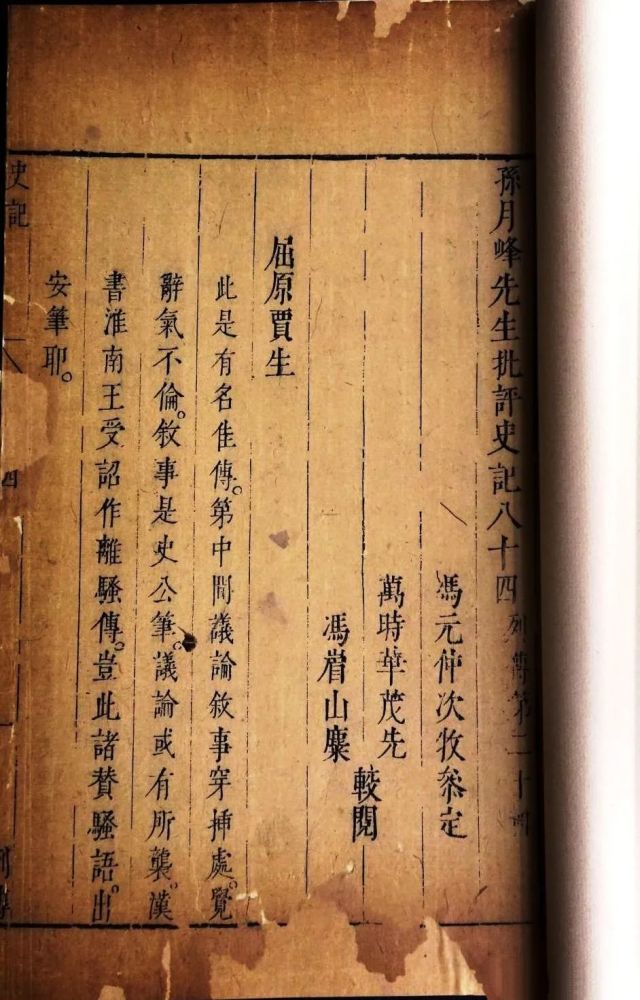 孫月峰先生批評史記八十四 列傳第二十四
馮元仲次牧叅定
萬時華茂先
馮眉山麋
較閱
屈原賈生
此是有名佳傳。第中間議論敘事穿揷處。覺
辭氣不倫。敘事是史公筆。議論或有所襲。漢
書淮南王受詔作離騷傳。豈此諸贊騷語。出
安筆耶。
史記
四